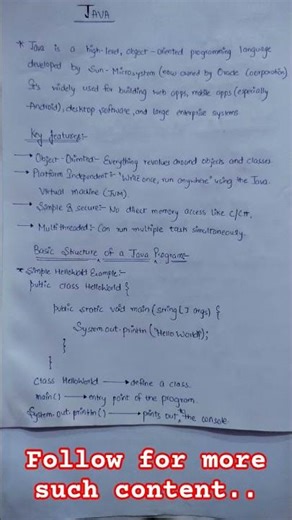 JAVA
* Java is a high-level, object-oriented programming language
developed by Sun-Microsystem (now owned by Oracle Corporation)
It's widely used for building web apps, mobile apps (especially
Android), desktop software, and large enterprise systems.
Key features:-
→ Object-Oriented:- Everything revolves around objects and classes
→ Platform Independent:- "Write once, run anywhere" using the Java
Virtual machine (JVM)
→ Simple & secure:- No direct memory access like C/C++.
→ Multithreaded:- Can run multiple task simultaneously.
Basic Structure of a Java Program:-
* Simple HelloWorld Example:-
public class HelloWorld {
public static void main(string[] args) {
System.out.println("Hello World");
}
}
class HelloWorld → define a class.
main() → entry point of the program
System.out.println() → prints out, the console
Follow for more
such content..